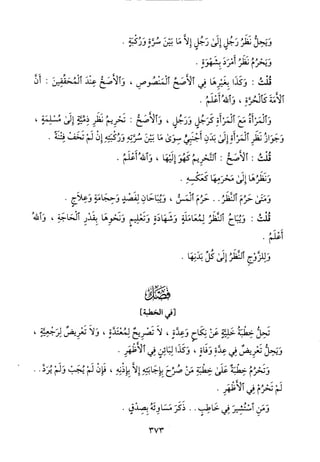 وَيَحِلُّ نَظَرُ رَجُلٍ إِلَىٰ رَجُلٍ إِلاَّ مَا بَيْنَ سُرَّةٍ وَرُكْبَةٍ .
وَيَحْرُمُ نَظَرُ أَمْرَدَ بِشَهْوَةٍ .
قُلْتُ : وَكَذَا بِغَيْرِهَا فِي الأَصَحِّ الْمَنْصُوصِ ، وَالأَصَحُّ عِنْدَ الْمُحَقِّقِينَ : أَنَّ
الأَمَةَ كَالْحُرَّةِ ، وَاللهُ أَعْلَمُ .
وَالْمَرْأَةُ مَعَ الْمَرْأَةِ كَرَجُلٍ وَرَجُلٍ ، وَالأَصَحُّ : تَحْرِيمُ نَظَرِ ذِمِّيَّةٍ إِلَىٰ مُسْلِمَةٍ ،
وَجَوَازُ نَظَرِ الْمَرْأَةِ إِلَىٰ بَدَنِ أَجْنَبِيٍّ سِوَىٰ مَا بَيْنَ سُرَّتِهِ وَرُكْبَتِهِ إِنْ لَمْ تَخَفْ فِتْنَةً .
قُلْتُ : الأَصَحُّ : التَّحْرِيمُ كَهُوَ إِلَيْهَا ، وَاللهُ أَعْلَمُ .
وَنَظَرُهَا إِلَىٰ مَحْرَمِهَا كَعَكْسِهِ .
وَمَتَىٰ حَرُمَ النَّظَرُ .. حَرُمَ الْمَسُّ ، وَيُبَاحَانِ لِفَصْدٍ وَحِجَامَةٍ وَعِلاَجٍ .
قُلْتُ : وَيُبَاحُ النَّظَرُ لِمُعَامَلَةٍ وَشَهَادَةٍ وَتَعْلِيمٍ وَنَحْوِهَا بِقَدْرِ الْحَاجَةِ ، وَاللهُ
أَعْلَمُ .
وَلِلزَّوْجِ النَّظَرُ إِلَىٰ كُلِّ بَدَنِهَا .
فَصْلٌ
[في الخطبة]
تَحِلُّ خِطْبَةُ خَلِيَّةٍ عَنْ نِكَاحٍ وَعِدَّةٍ ، لاَ تَصْرِيحٌ لِمُعْتَدَّةٍ ، وَلاَ تَعْرِيضٌ لِرَجْعِيَّةٍ ،
وَيَحِلُّ تَعْرِيضٌ فِي عِدَّةِ وَفَاةٍ ، وَكَذَا لِبَائِنٍ فِي الأَظْهَرِ .
وَتَحْرُمُ خِطْبَةٌ عَلَىٰ خِطْبَةِ مَنْ صُرِّحَ بِإِجَابَتِهِ إِلاَّ بِإِذْنِهِ ، فَإِنْ لَمْ يُجَبْ وَلَمْ يُرَدَّ ..
لَمْ تَحْرُمْ فِي الأَظْهَرِ .
وَمَنِ اسْتُشِيرَ فِي خَاطِبٍ .. ذَكَرَ مَسَاوِئَهُ بِصِدْقٍ .
٣٧٣